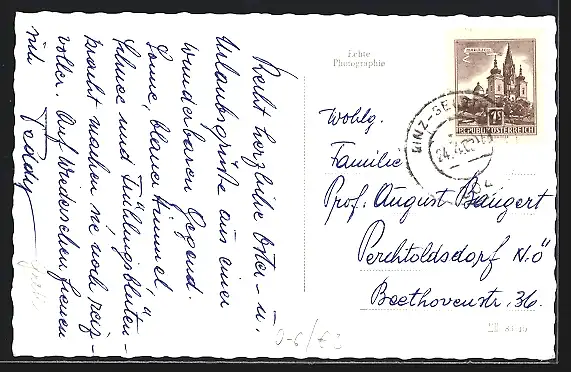 Recht herzliche Oster- u.
Urlaubsgrüße aus einer
wunderbaren Gegend.
Sonne, blauer Himmel,
Schnee und Frühlingsblüten-
pracht machen sie noch reiz-
voller. Auf Wiedersehen freuen
mit Teddy
Echte
Photographie
REPUBLIK ÖSTERREICH
LINZ-
24.4.62
Wohlg.
Familie
Prof. August Baugert
Perchtoldsdorf N.Ö
Beethovenstr. 36.
0-6/€3